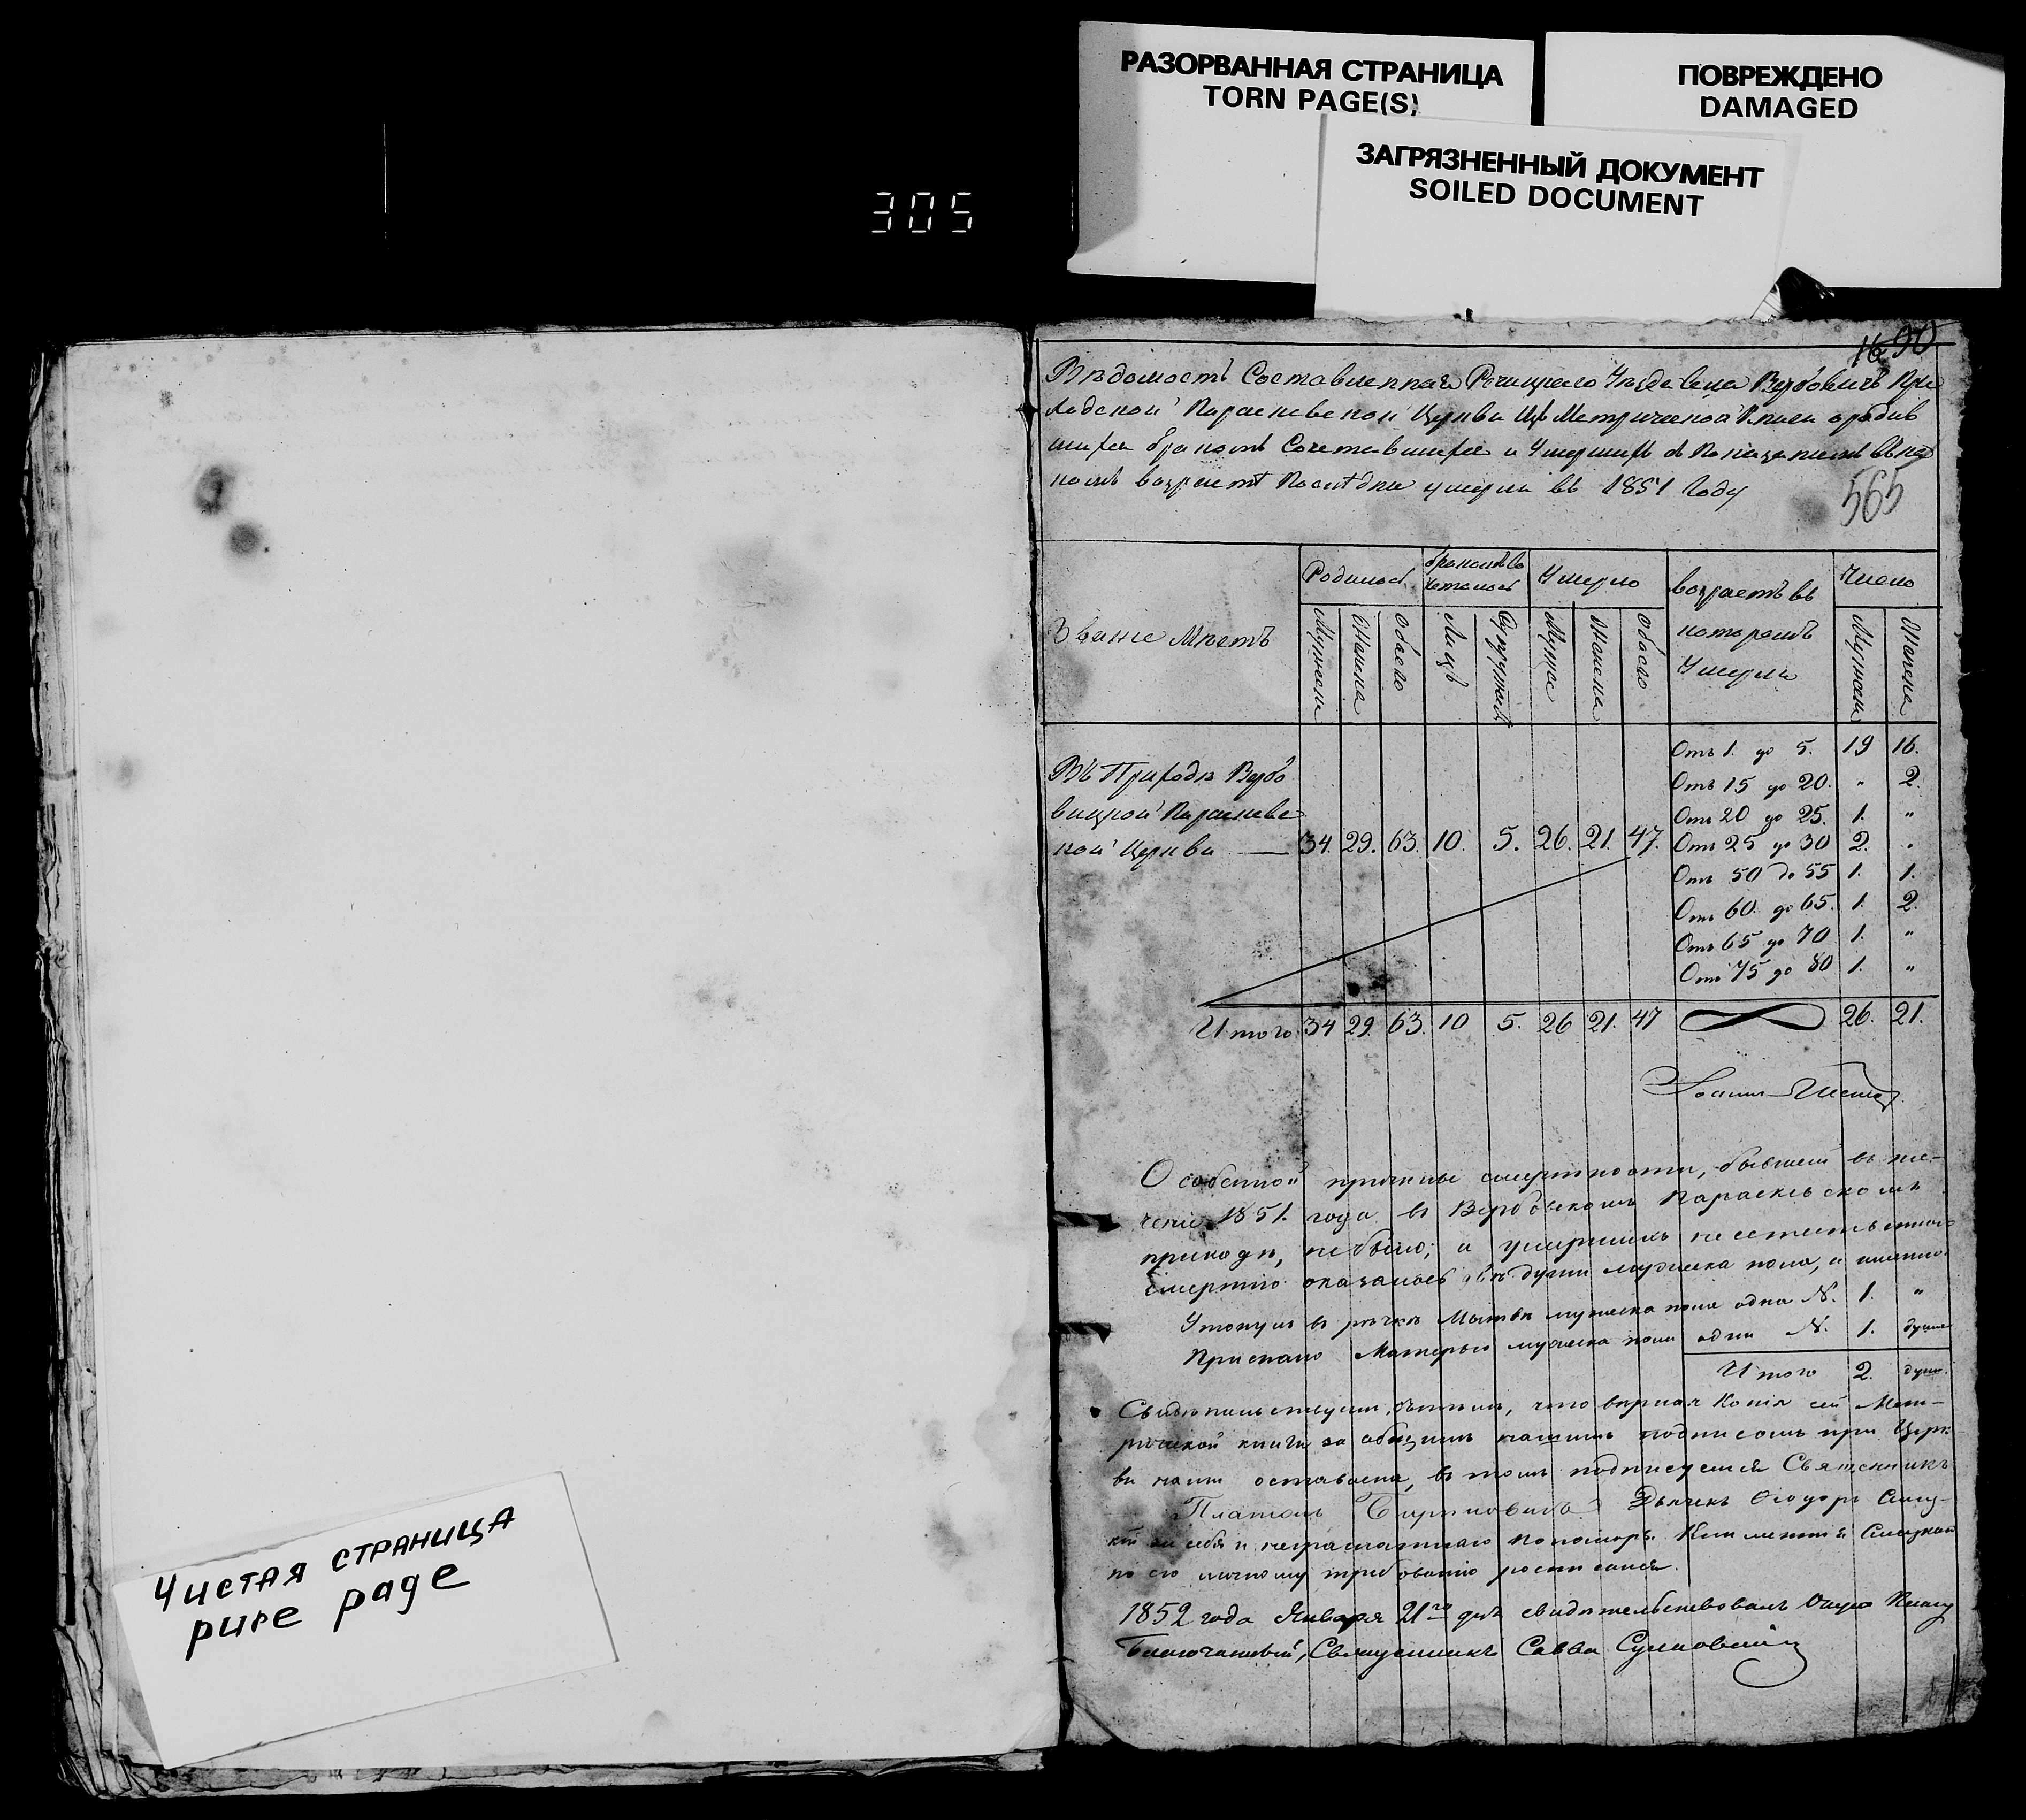 РАЗОРВАННАЯ СТРАНИЦА
TORN PAGE(S)
ПОВРЕЖДЕНО
DAMAGED
ЗАГРЯЗНЕННЫЙ ДОКУМЕНТ
SOILED DOCUMENT
305
Чистая страница
pure page
90
Вѣдомость Составленная Речицкаго Уѣзда Села Вербовичъ При
ходской Параскевской Церкви Метрической Книги о родив
шихся бракомъ Сочетавшихся и Умершихъ съ Показаніемъ въ ка
комъ возрастѣ Послѣдніе умерли въ 1851 Году
565
Званіе Мѣстъ
Родилось
бракомъ Со
четалось
Умерло
возрастъ въ
которомъ
Умерли
Число
Мужеск
Женска
Обоего
Лицъ
Супружествъ
Мужес
Женска
Обоего
Мужеска
Женска
Въ Приходѣ Вербо
вицкой Параскеве
кой Церкви 34. 29. 63. 10. 5. 26. 21. 47.
Отъ 1. до 5. 19 16.
Отъ 15 до 20. " 2.
Отъ 20 до 25. 1. "
Отъ 25 до 30 2. "
Отъ 50 до 55 1. 1.
Отъ 60. до 65. 1. 2.
Отъ 65 до 70 1. "
Отъ 75 до 80 1. "
Итого 34 29. 63. 10 5. 26 21. 47 26. 21.
Особенной причины смертности, бывшей въ те-
ченіе 1851. года въ Параскевскомъ
приходѣ, не было; а умершихъ неестественною
смертію оказалось двѣ души мужеска пола, а именно
Утонулъ въ рѣчкѣ мужеска пола одна N. 1. "
Приспано Матерью мужеска пола одна N. 1. душа
Итого 2. души
Свидѣтельствуемъ, что вѣрная Копія сей Мет-
рической книги за общимъ нашимъ подписомъ при Церк
ви нашей оставлена, въ томъ подписуемся Священникъ
Платонъ Дьячекъ Ѳеодоръ
за себя и неграмотнаго пономаря Климентія
по его личному требованію росписался.
1852 года Января 21го дня свидѣтельствовалъ Оную Книгу
Благочинный, Священникъ Савва